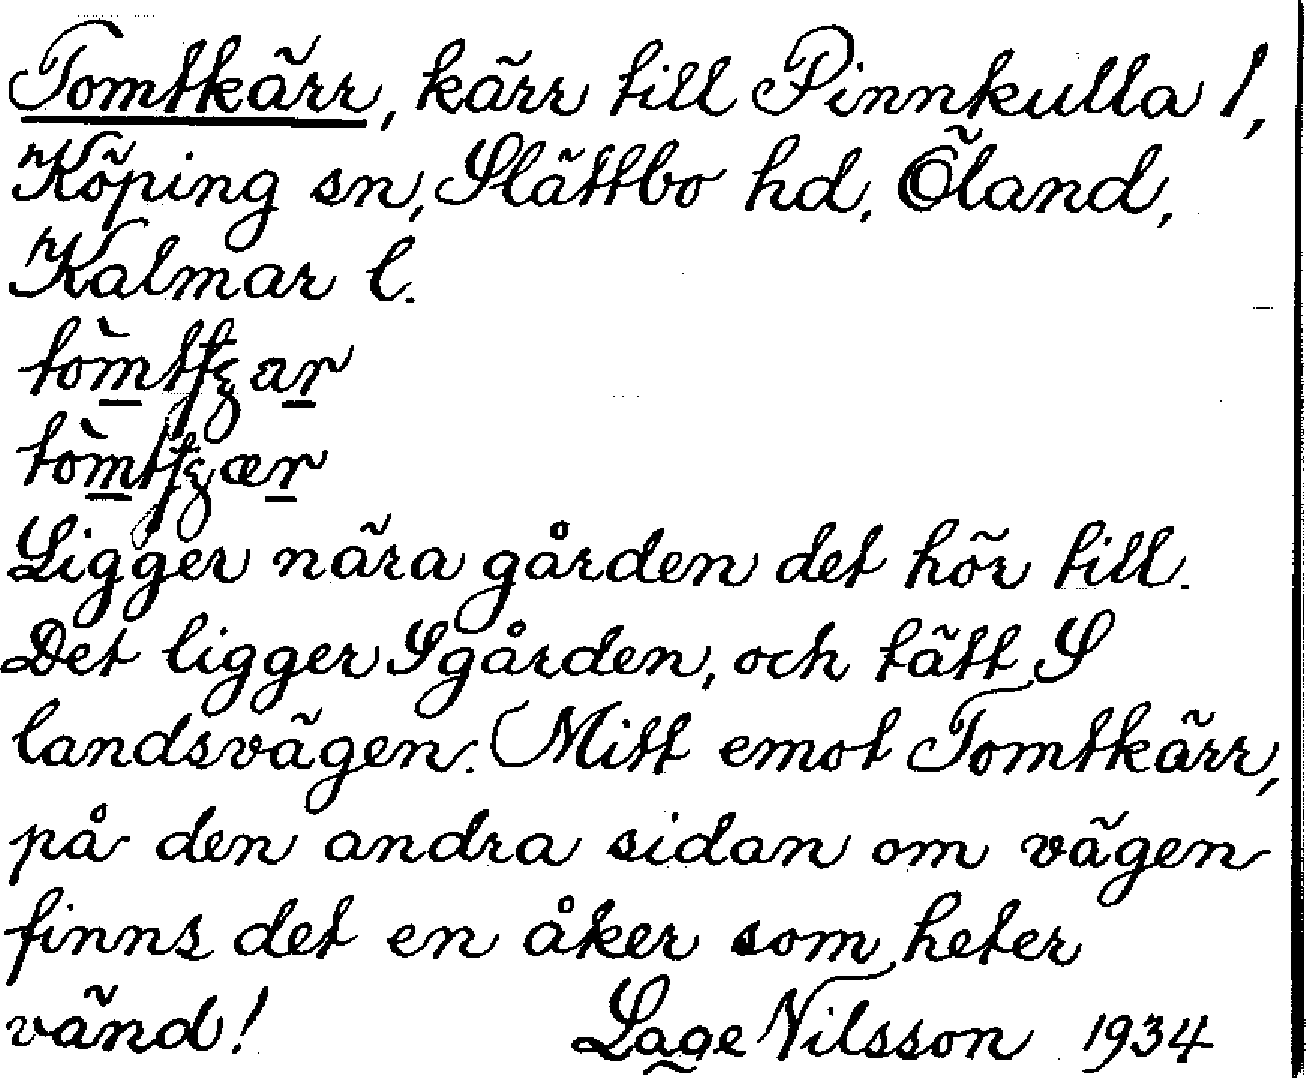 Tomtkärr, kärr till Pinnkulla 1,
Köping sn, Slättbo hd, Öland,
Kalmar l.
Ligger nära gården det hör till.
Det ligger S gården, och tätt S
landsvägen. Mitt emot Tomtkärr,
på den andra sidan om vägen
finns det en åker som heter
vänd! Lage Nilsson 1934